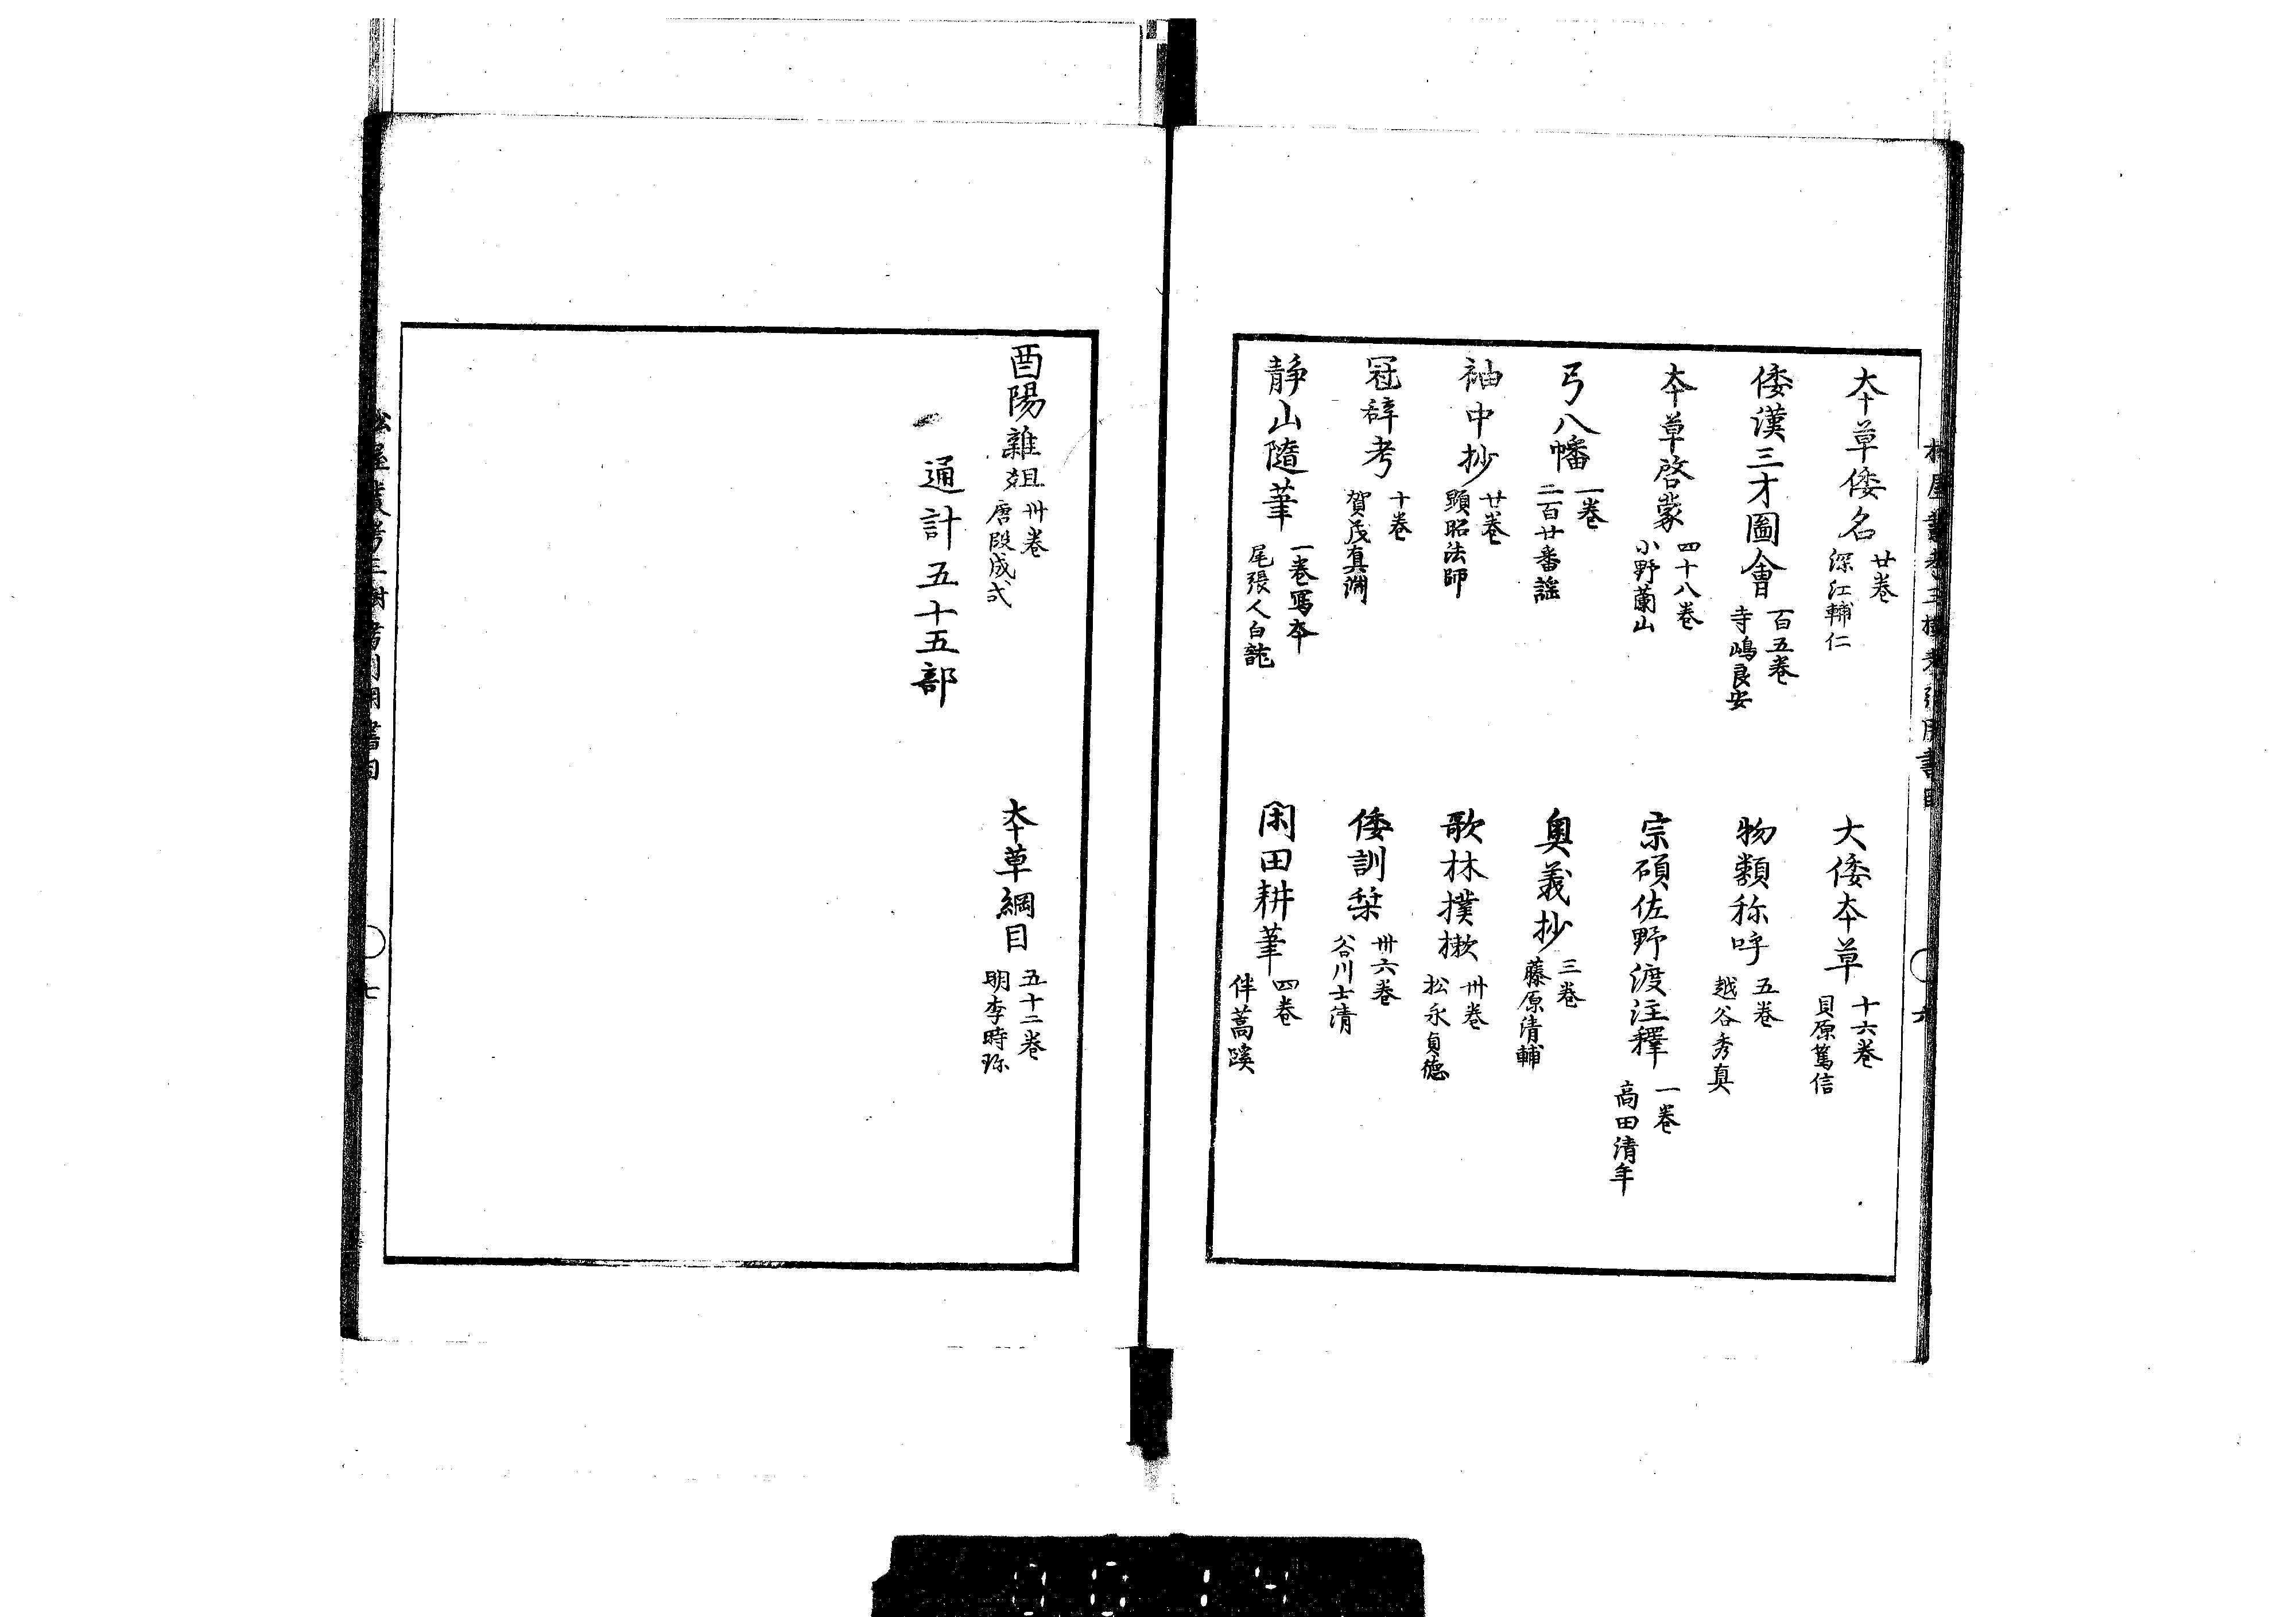 本草倭名 廿巻 深江輔仁
大倭本草 十六巻 貝原篤信
倭漢三才圖會 百五巻 寺嶋良安
物類称呼 五巻 越谷秀真
本草啓蒙 四十八巻 小野蘭山
宗碩佐野渡注釋 一巻 高田清年
弓八幡 一巻 二百廿番謡
奥義抄 三巻 藤原清輔
袖中抄 廿巻 顕昭法師
歌林撲樕 卅巻 松永貞徳
冠辞考 十巻 賀茂真淵
倭訓栞 卅六巻 谷川士清
静山随筆 一巻写本 尾張人白龍
閑田耕筆 四巻 伴蒿蹊
六
酉陽雑俎 卅巻 唐段成式
本草綱目 五十二巻 明李時珍
通計五十五部
七